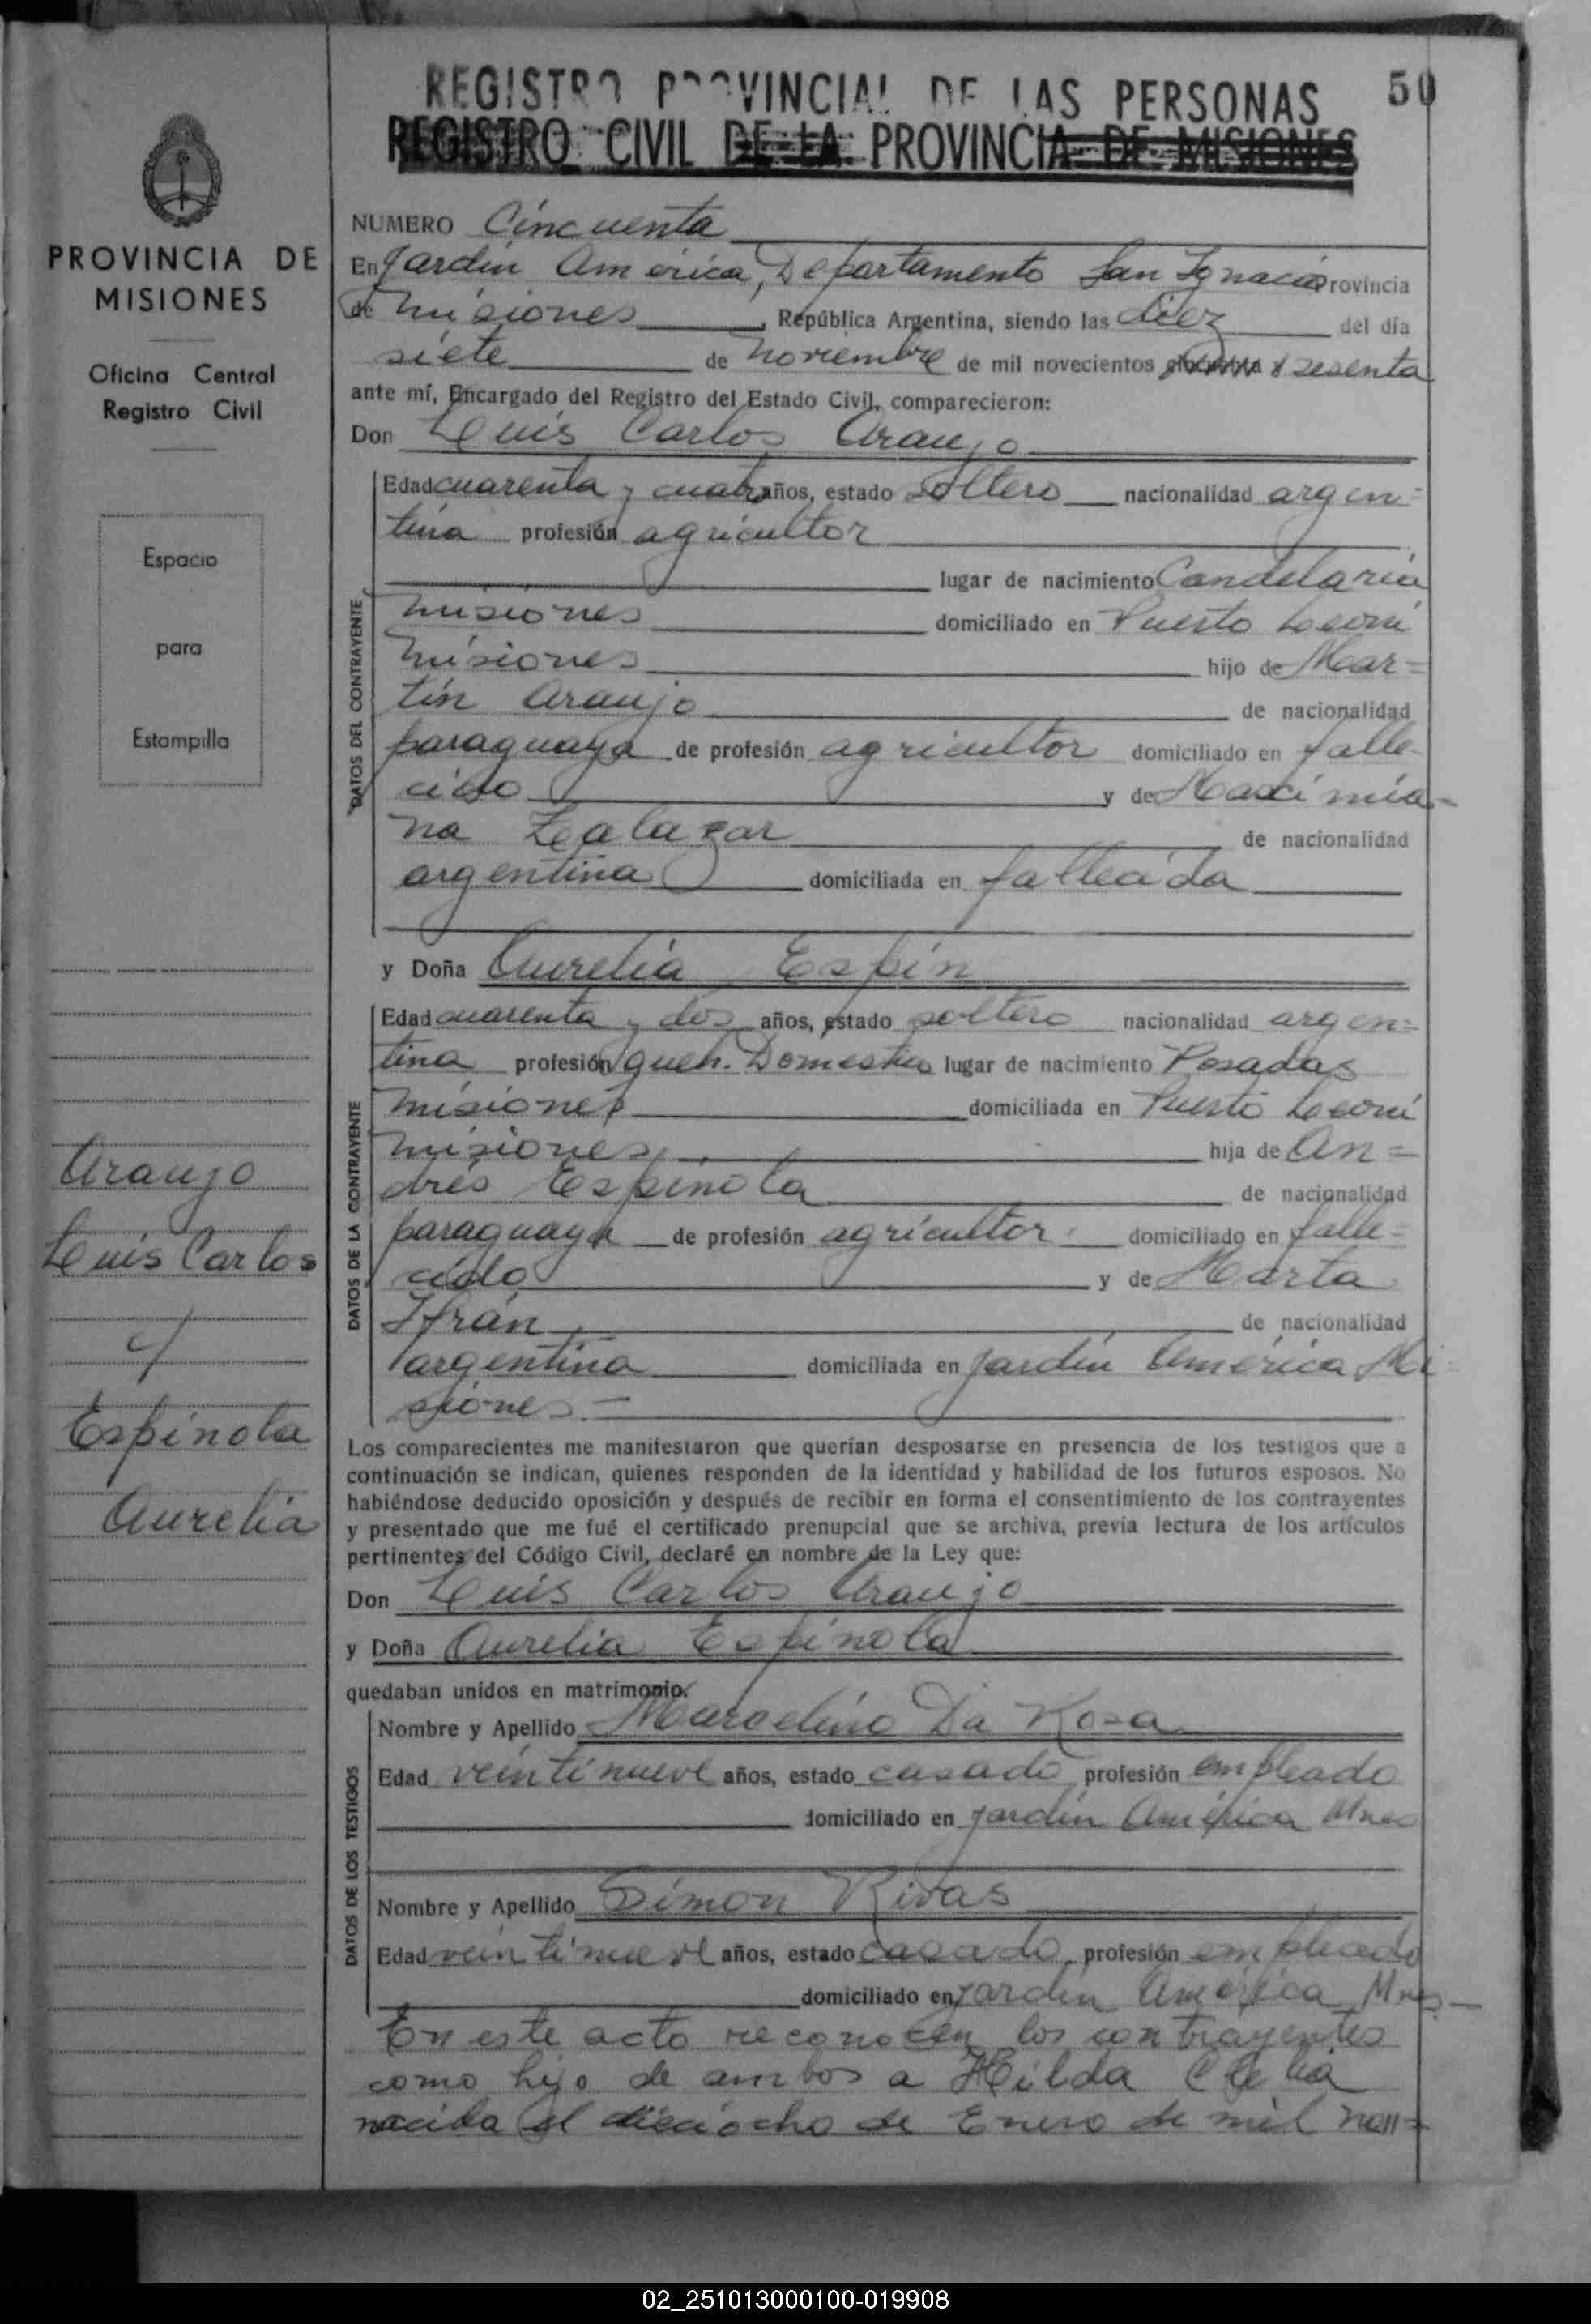 REGISTRO PROVINCIAL DE LAS PERSONAS
50
REGISTRO CIVIL DE LA PROVINCIA DE MISIONES
PROVINCIA DE
MISIONES
Oficina Central
Registro Civil
Espacio
para
Estampilla
Araujo
Luis Carlos
y
Espinola
Aurelia
NUMERO Cincuenta
En Jardin America, Departamento San Ignacio Provincia
de Misiones, República Argentina, siendo las diez del día
siete de noviembre de mil novecientos sesenta
ante mí, Encargado del Registro del Estado Civil, comparecieron:
Don Luis Carlos Araujo
DATOS DEL CONTRAYENTE
Edad cuarenta y cuatro años, estado soltero nacionalidad argen=
tina profesión agricultor
lugar de nacimiento Candelaria
Misiones domiciliado en Puerto
Misiones hijo de Mar=
tín Araujo de nacionalidad
paraguaya de profesión agricultor domiciliado en falle-
cido y de Maximia-
na Zalazar de nacionalidad
argentina domiciliada en fallecida
y Doña Aurelia Espin
DATOS DE LA CONTRAYENTE
Edad cuarenta y dos años, estado soltera nacionalidad argen=
tina profesión queh. Domestico lugar de nacimiento Posadas
Misiones domiciliada en Puerto
Misiones hija de An=
drés Espinola de nacionalidad
paraguaya de profesión agricultor domiciliado en falle=
cido y de Marta
Ifrán de nacionalidad
argentina domiciliada en Jardin America Mi=
siones.-
Los comparecientes me manifestaron que querían desposarse en presencia de los testigos que a
continuación se indican, quienes responden de la identidad y habilidad de los futuros esposos. No
habiéndose deducido oposición y después de recibir en forma el consentimiento de los contrayentes
y presentado que me fué el certificado prenupcial que se archiva, previa lectura de los artículos
pertinentes del Código Civil, declaré en nombre de la Ley que:
Don Luis Carlos Araujo
y Doña Aurelia Espinola
quedaban unidos en matrimonio.
DATOS DE LOS TESTIGOS
Nombre y Apellido Marcelino Da Rosa
Edad veintinueve años, estado casado profesión empleado
domiciliado en Jardin América Mnes
Nombre y Apellido Simon Rivas
Edad veintinueve años, estado casado profesión empleado
domiciliado en Jardin América Mnes-
En este acto reconocen los contrayentes
como hijo de ambos a Hilda Clelia
nacida el dieciocho de Enero de mil nov=
02_251013000100-019908